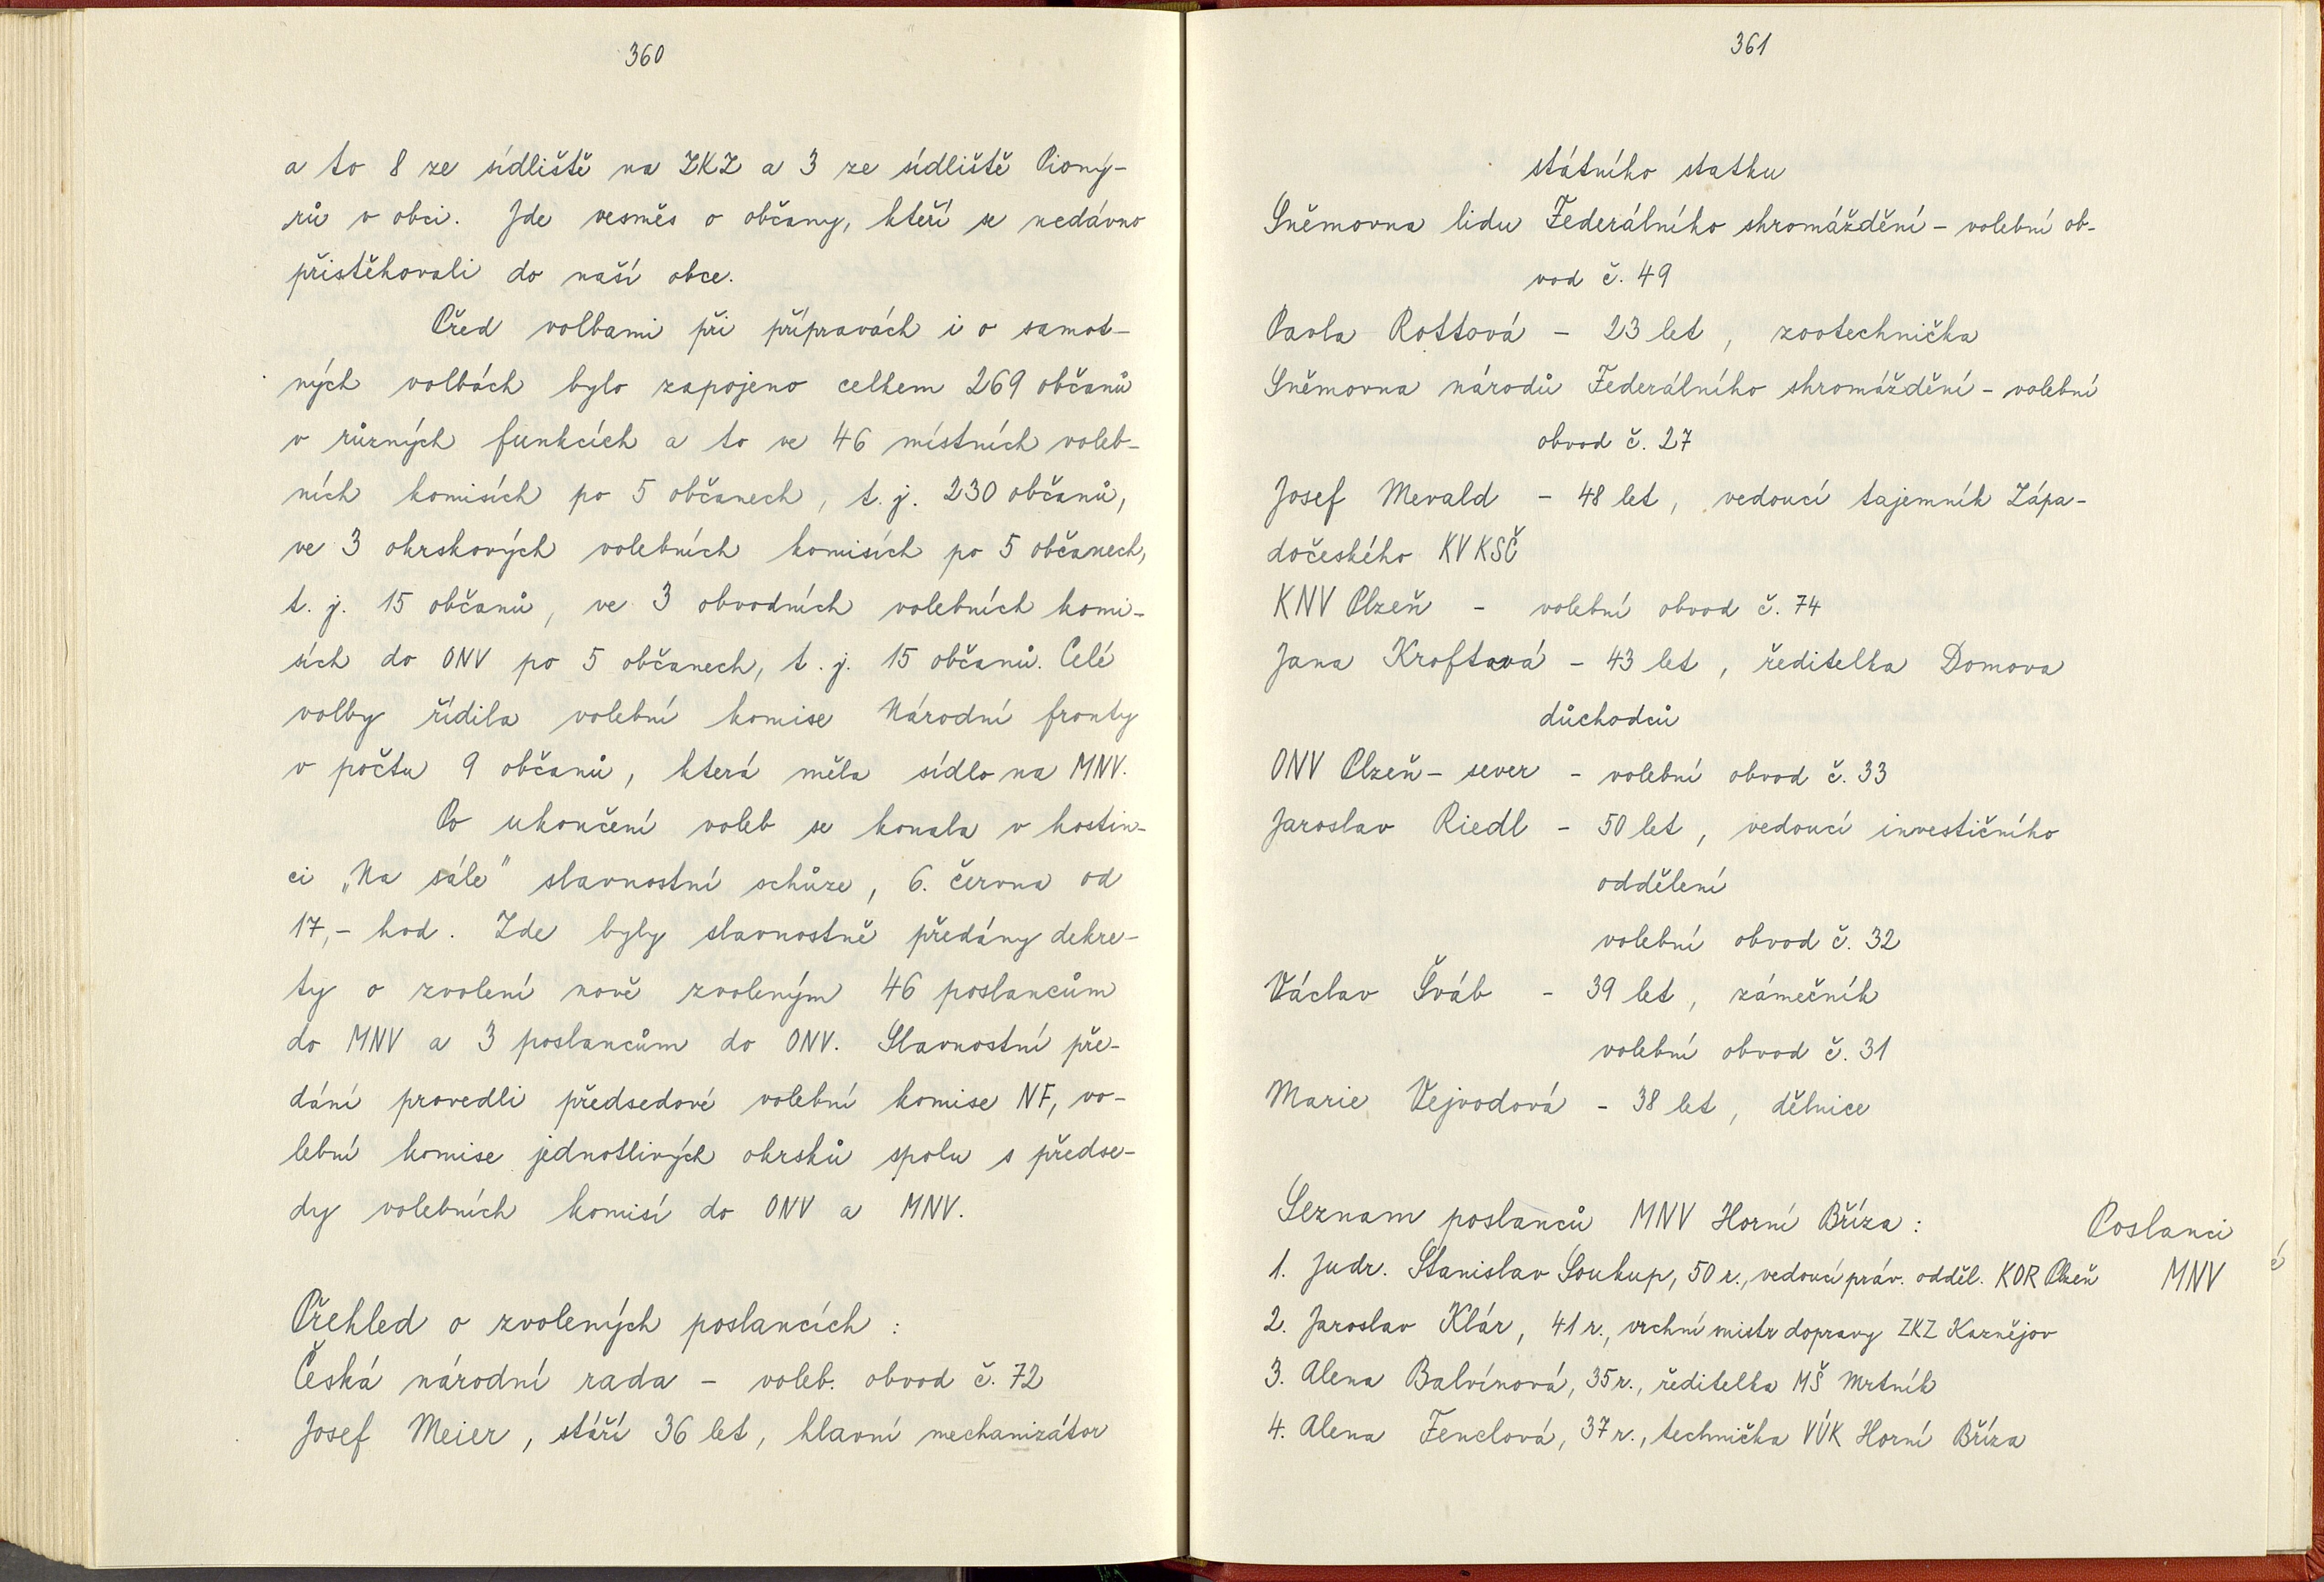 360
a to 8 ze sídliště na ZKZ a 3 ze sídliště Pioný-
rů v obci. Jde vesměs o občany, kteří se nedávno
přistěhovali do naší obce.
Před volbami při přípravách i o samot-
ných volbách bylo zapojeno celkem 269 občanů
v různých funkcích a to ve 46 místních voleb-
ních komisích po 5 občanech, t. j. 230 občanů,
ve 3 okrskových volebních komisích po 5 občanech,
t. j. 15 občanů, ve 3 obvodních volebních komi-
sích do ONV po 5 občanech, t. j. 15 občanů. Celé
volby řídila volební komise Národní fronty
v počtu 9 občanů, která měla sídlo na MNV.
Po ukončení voleb se konala v hostin-
ci „Na sále" slavnostní schůze, 6. června od
17,- hod. Zde byly slavnostně předány dekre-
ty o zvolení nově zvoleným 46 poslancům
do MNV a 3 poslancům do ONV. Slavnostní pře-
dání provedli předsedové volební komise NF, vo-
lební komise jednotlivých okrsků spolu s předse-
dy volebních komisí do ONV a MNV.
Přehled o zvolených poslancích :
Česká národní rada - voleb. obvod č. 72
Josef Meier, stáří 36 let, hlavní mechanizátor
361
státního statku
Sněmovna lidu Federálního shromáždění - volební ob-
vod č. 49
Pavla Rottová - 23 let, zootechnička
Sněmovna národů Federálního shromáždění - volební
obvod č. 27
Josef Mevald - 48 let, vedoucí tajemník Zápa-
dočeského KV KSČ
KNV Plzeň - volební obvod č. 74
Jana Kroftová - 43 let, ředitelka Domova
důchodců
ONV Plzeň - sever - volební obvod č. 33
Jaroslav Riedl - 50 let, vedoucí investičního
oddělení
volební obvod č. 32
Václav Šváb - 39 let, zámečník
volební obvod č. 31
Marie Vejvodová - 38 let, dělnice
Seznam poslanců MNV Horní Bříza :
Poslanci
MNV
1. Judr. Stanislav Soukup, 50 r., vedoucí práv. odděl. KOR Plzeň
2. Jaroslav Klár, 41 r., vrchní mistr dopravy ZKZ Kaznějov
3. Alena Balvínová, 35 r., ředitelka MŠ Mrtník
4. Alena Fenclová, 37 r., technička VÚK Horní Bříza